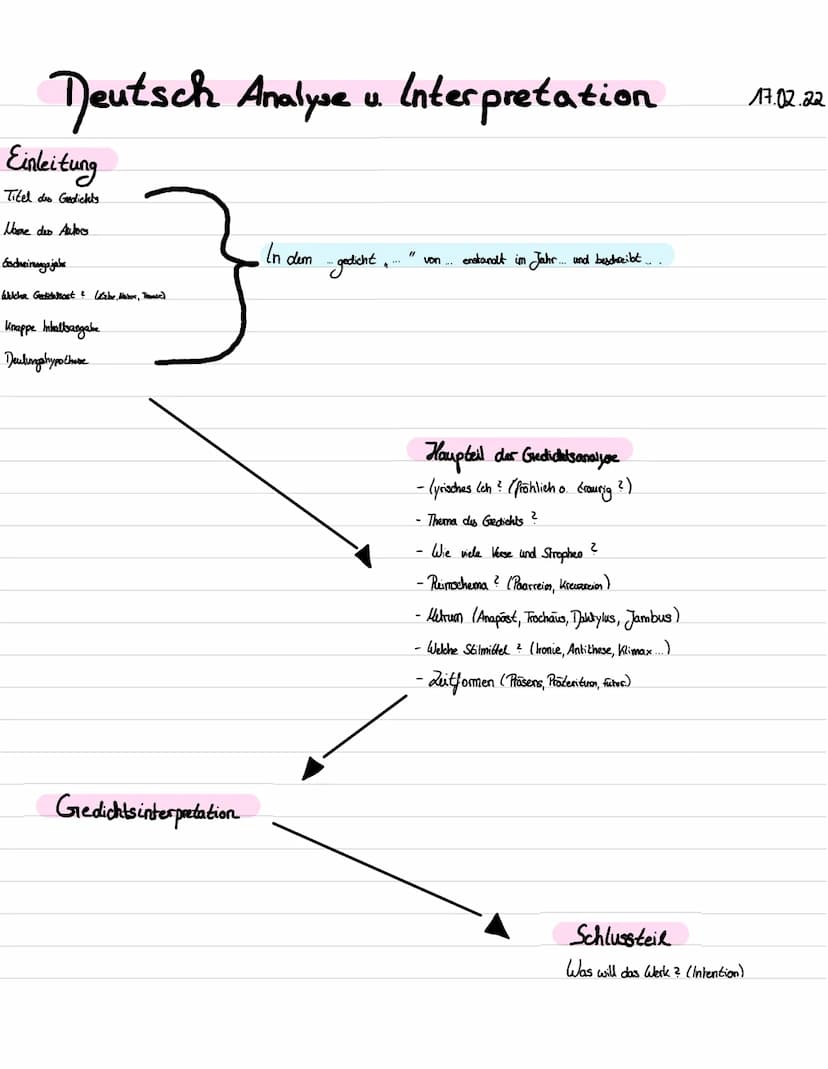 Deutsch Analyse u. Interpretation
17.02.22
Einleitung
Titel des Gedichts
Name des Autors
Erscheinungsjahr
Welche Gedichtsart? (Liebe, Natur, Trauer)
Knappe Inhaltsangabe
Deutungshypothese
In dem ...gedicht „..." von ... entstandt im Jahr... und beschreibt...
Haupteil der Gedichtsanalyse
- lyrisches Ich? (fröhlich o. traurig?)
- Thema des Gedichts?
- Wie viele Verse und Strophen?
- Reimschema? (Paarreim, Kreuzreim)
- Metrum (Anapäst, Trochäus, Daktylus, Jambus)
- Welche Stilmittel? (Ironie, Antithese, Klimax...)
- Zeitformen (Präsens, Präteritum, Futur)
Gedichtsinterpretation
Schlussteil
Was will das Werk? (Intention)